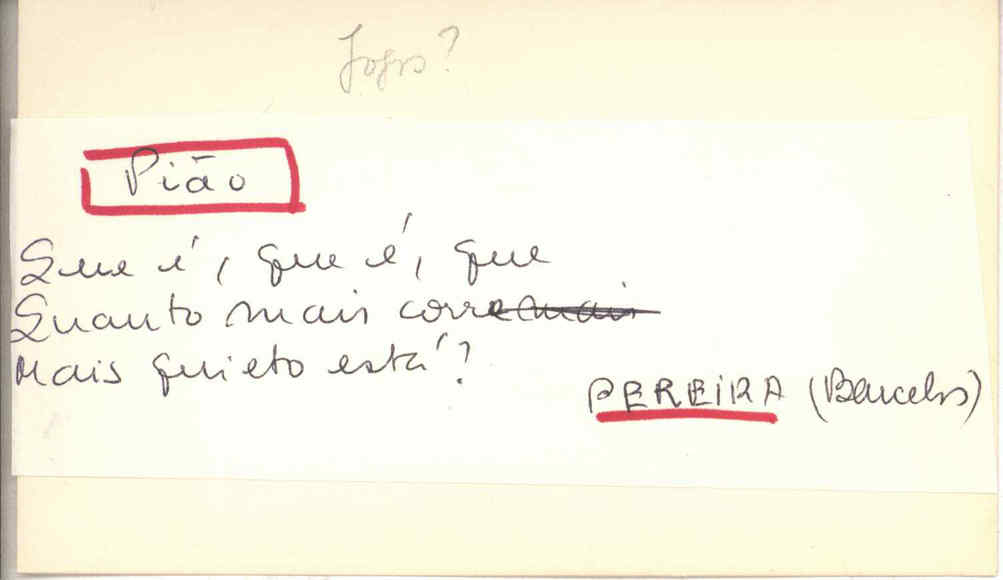 Jogos?
Pião
Que é, que é, que
Quanto mais corre mais
Mais quieto está?
PEREIRA (Barcelos)